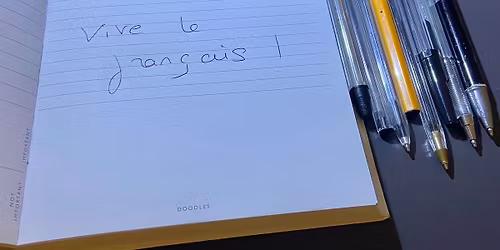 Vive le
français !
IMPORTANT
NOT
IMPORTANT
DOODLES